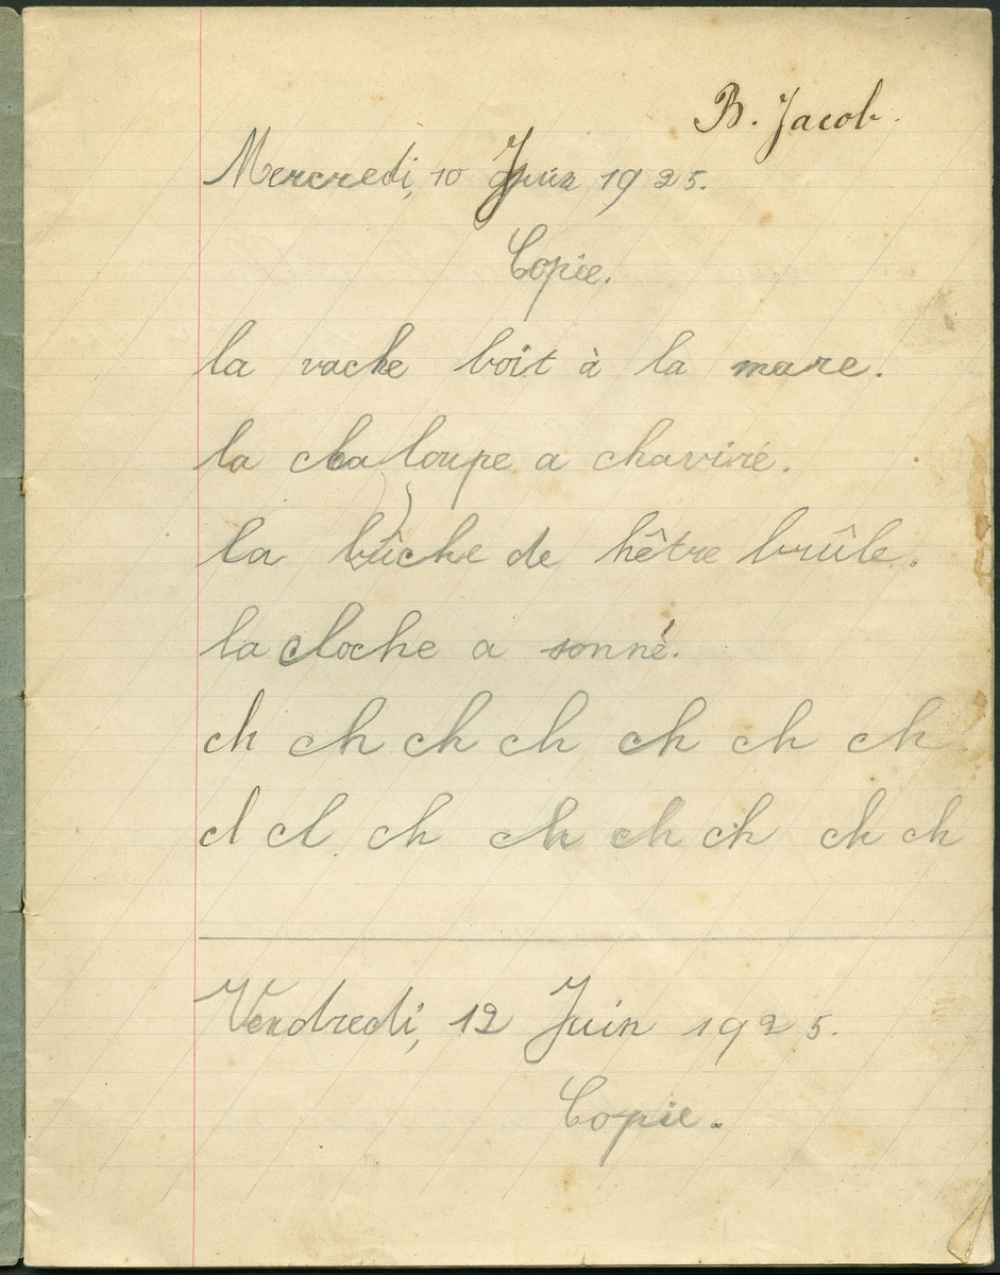 B. Jacob.
Mercredi, 10 Juin 1925.
Copie.
la vache boit à la mare.
la chaloupe a chaviré.
la bûche de hêtre brûle.
la cloche a sonné.
ch ch ch ch ch ch ch
cl cl ch ch ch ch ch ch
Vendredi, 12 Juin 1925.
Copie.